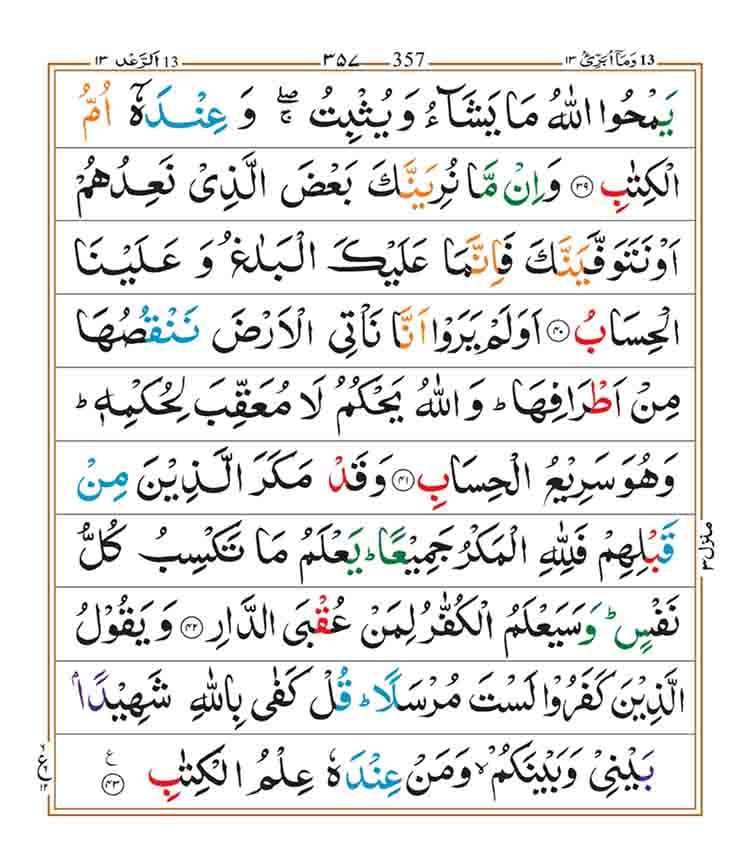 13 اَلرَّعْد ١٣ ٣٥٧ 357 وَمَآ اُبَرِّئُ ١٣ 13
يَمْحُوا اللّٰهُ مَا يَشَآءُ وَ يُثْبِتُ ۖۚ وَ عِنْدَهٗۤ اُمُّ
الْكِتٰبِ ﴿۳۹﴾ وَاِنْ مَّا نُرِيَنَّكَ بَعْضَ الَّذِيْ نَعِدُهُمْ
اَوْ نَتَوَفَّيَنَّكَ فَاِنَّمَا عَلَيْكَ الْبَلٰغُ وَ عَلَيْنَا
الْحِسَابُ ﴿۴۰﴾ اَوَلَمْ يَرَوْا اَنَّا نَاْتِي الْاَرْضَ نَنْقُصُهَا
مِنْ اَطْرَافِهَا ؕ وَ اللّٰهُ يَحْكُمُ لَا مُعَقِّبَ لِحُكْمِهٖ ؕ
وَهُوَ سَرِيْعُ الْحِسَابِ ﴿۴۱﴾ وَقَدْ مَكَرَ الَّذِيْنَ مِنْ
قَبْلِهِمْ فَلِلّٰهِ الْمَكْرُ جَمِيْعًا ؕ يَعْلَمُ مَا تَكْسِبُ كُلُّ
نَفْسٍ ؕ وَ سَيَعْلَمُ الْكُفّٰرُ لِمَنْ عُقْبَى الدَّارِ ﴿۴۲﴾ وَ يَقُوْلُ
الَّذِيْنَ كَفَرُوْا لَسْتَ مُرْسَلًا ؕ قُلْ كَفٰى بِاللّٰهِ شَهِيْدًۢا
بَيْنِيْ وَبَيْنَكُمْ ۙ وَمَنْ عِنْدَهٗ عِلْمُ الْكِتٰبِ ﴿۴۳﴾ ع
منزل ۳
ع